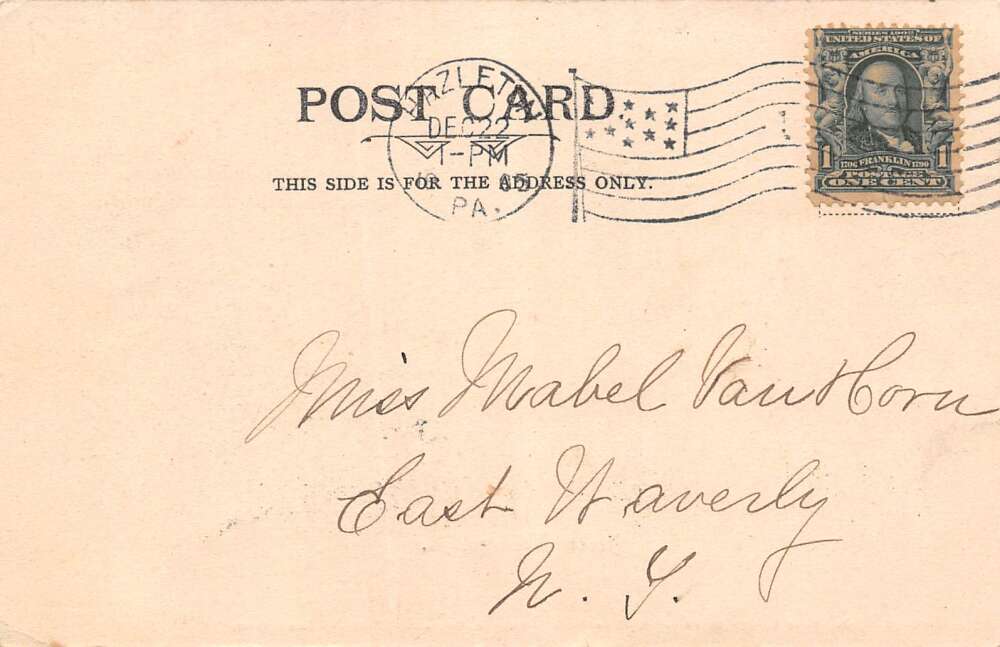 SERIES 1902
UNITED STATES OF
AMERICA
HAZLETON
POST CARD.
DEC 22
1-PM
1 1
1706 FRANKLIN 1790
POSTAGE
ONE CENT
THIS SIDE IS FOR THE ADDRESS ONLY.
PA.
Miss Mabel VanHorn
East Waverly
N. Y.